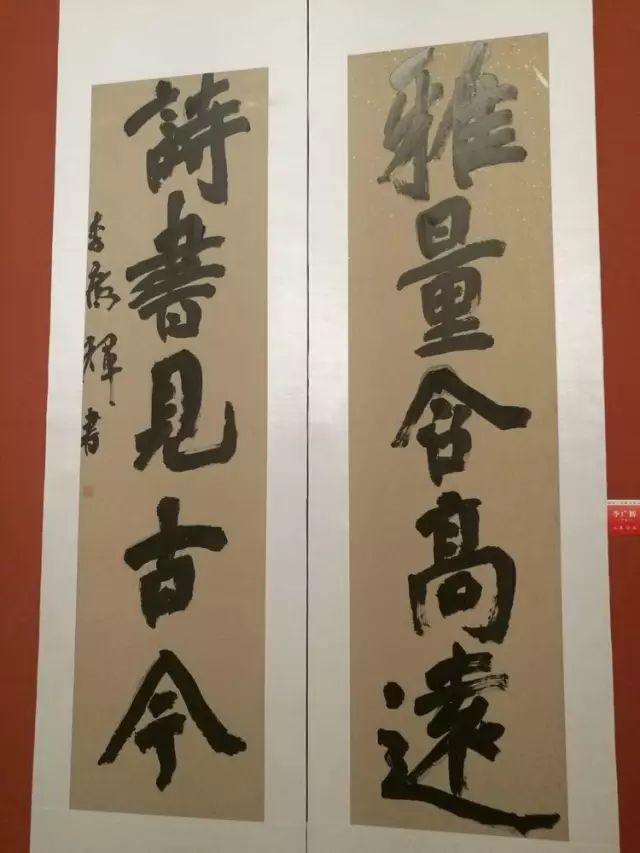 雅量含高遠
詩書見古今
李廣輝書
李广辉